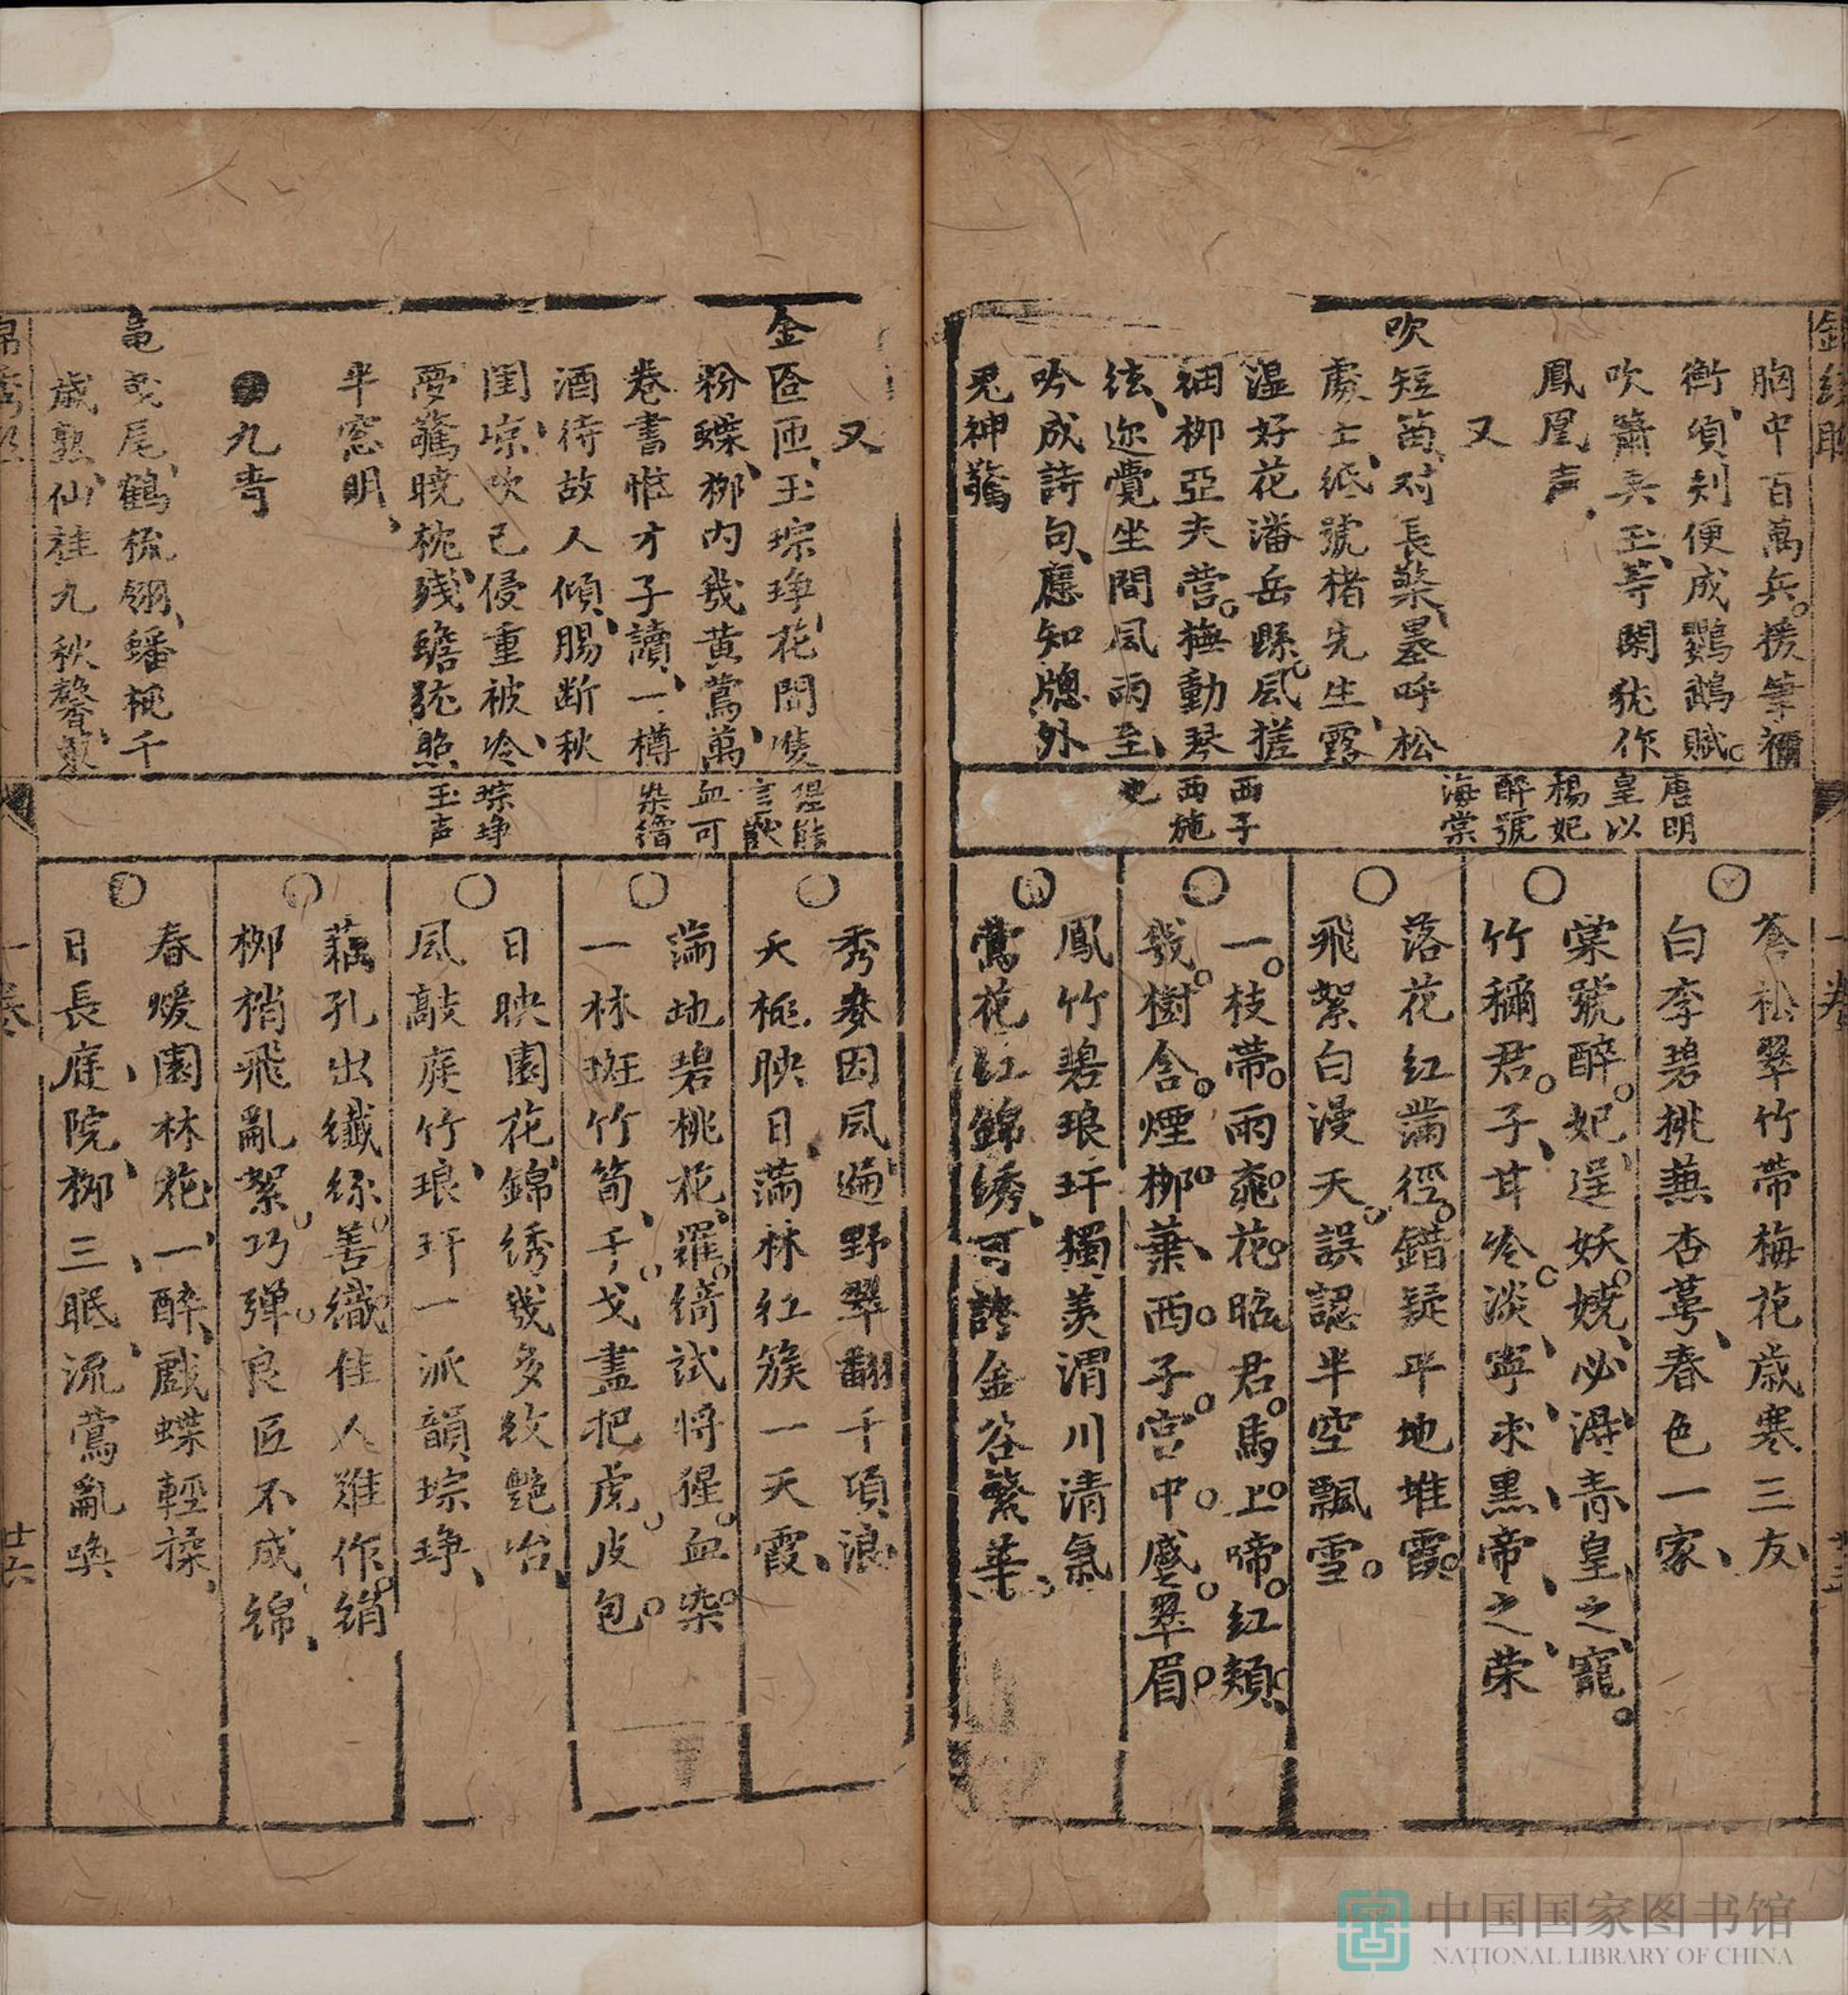 胸中百萬兵援筆禰
衡頃刻便成鸚鵡賦
吹簫吴玉等閑犹作
鳳凰声
又
吹短笛对長檠墨呼松
處士紙號楮先生露
湿好花潘岳縣風搓
細柳亞夫营梅動琴
絃迩覺坐間風雨至
吟成詩句應知牕外
鬼神驚
唐明
皇以
楊妃
醉號
海棠
西子
西施
也
蒼松翠竹帶梅花歳寒三友
白李碧桃蕪杏萼春色一家
棠號醉妃逞妖嬈必得青皇之寵
竹稱君子耳冷淡寧求黒帝之荣
落花红滿徑錯疑平地堆霞
飛絮白漫天誤認半空飄雪
一枝帶雨花昭君馬上啼红頬
幾樹含煙柳葉西子宫中蹙翠眉
鳳竹碧琅玕獨羨渭川清氣
鶯花红錦绣可誇金谷繁華
又
金匼匝玉琮琤花間雙
粉蝶柳内幾黄鶯萬
卷書惟才子讀一樽
酒待故人傾腸断秋
闺凉吹已侵重被冷
夢驚曉枕残蟾犹照
半窓明
九青
亀曳尾鶴梳翎蟠桃千
歳熟仙桂九秋馨
猩能
言獸
血可
染繒
琮琤
玉声
秀麥因风遍野翠翻千頃浪
夭桃映日滿林红簇一天霞
滿地碧桃花羅綺試将猩血染
一林斑竹筍干戈盡把虎皮包
日映園花錦绣幾多纹艶冶
风敲庭竹琅玕一派韻琮琤
藕孔出纖絲善織佳人難作绢
柳梢飛亂絮巧弹良匠不成綿
春煖園林花一醉戯蝶輕操
日長庭院柳三眠流鶯亂喚
一卷
廿六
中国国家图书馆
NATIONAL LIBRARY OF CHINA